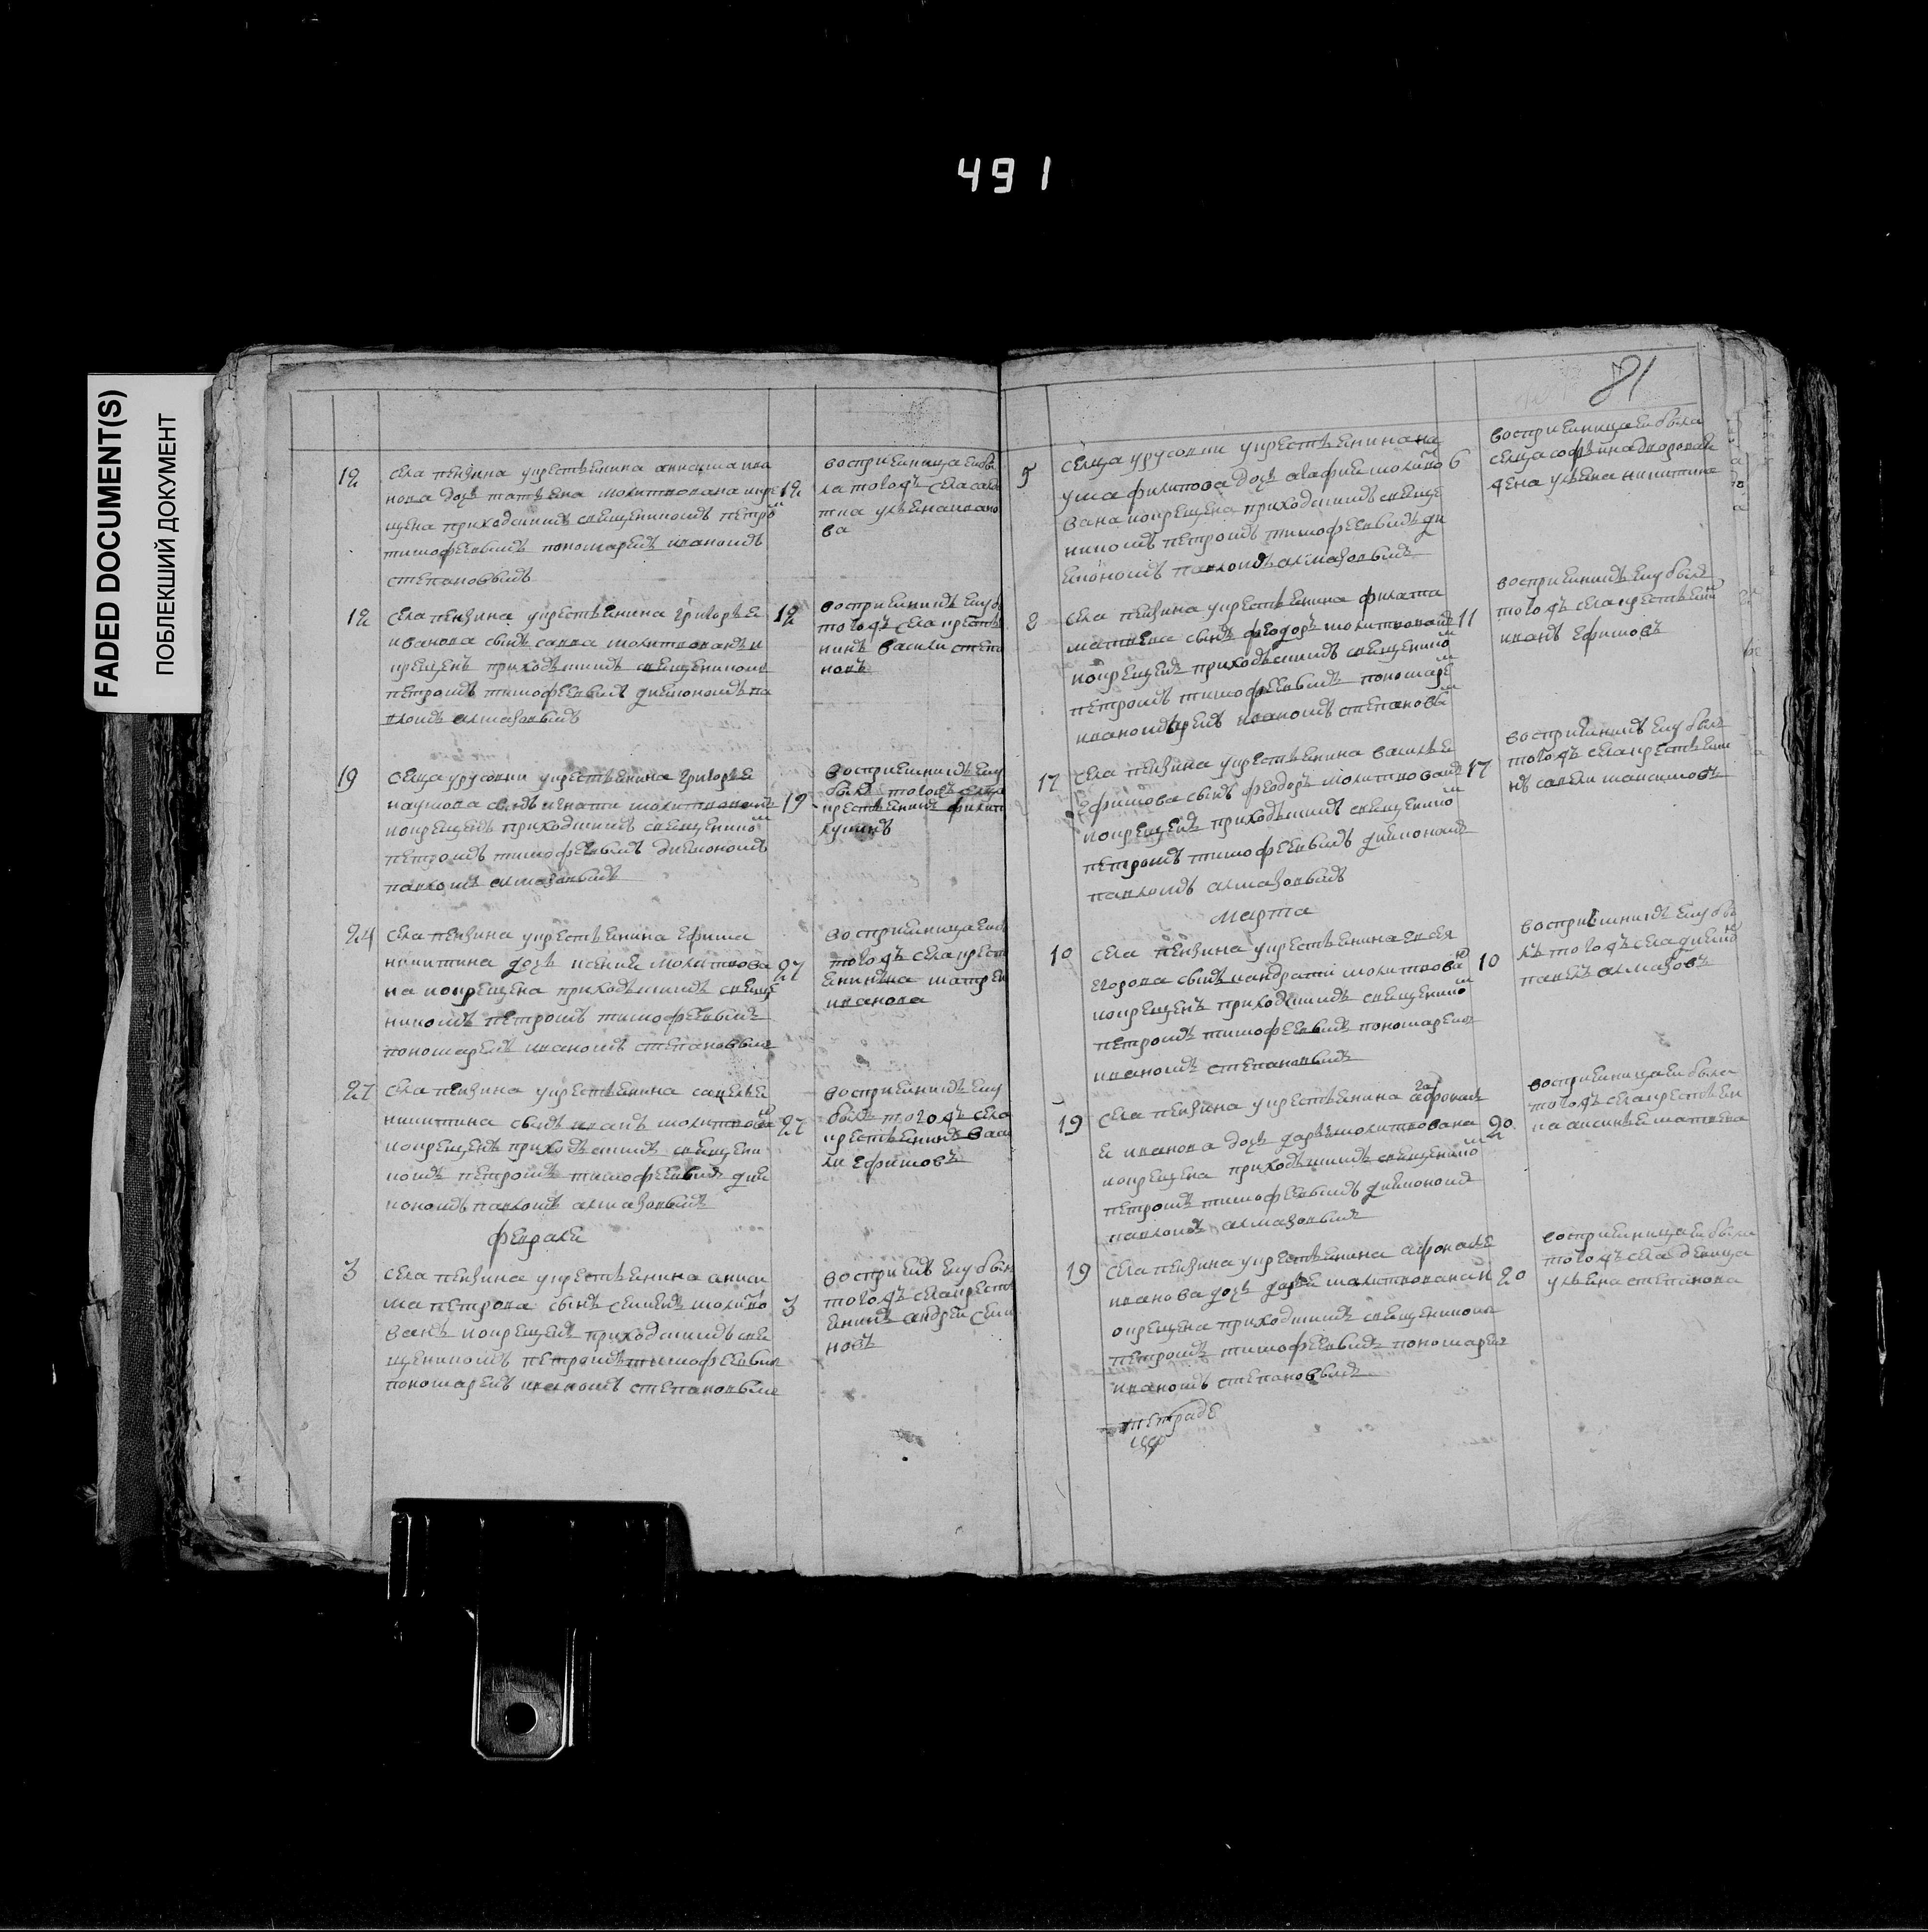 491
FADED DOCUMENT(S)
ПОБЛЕКШИЙ ДОКУМЕНТ
12
села пензина укрестьенина анисима ива
нова дочь татьяна молитвована икре
щена приходскимъ священикомъ петро
тимофеевымъ пономаремъ иваномъ
степановымъ
12
восприемница еи бы
ла тогожъ села
ульяна ивано
ва
12
села пензина укрестьенина григорье
иванова сынъ савва молитвованъ и
крещенъ приходскимъ священикомъ
петромъ тимофеевымъ диякономъ па
вломъ алмазовымъ
12
восприемникъ ему б
тогожъ села кресть
нинъ василеи степа
новъ
19
селца урусовки укрестьенина григорье
наумова сынъ игнати молитвованъ
икрещенъ приходскимъ священико
петромъ тимофеевымъ диякономъ
павломъ алмазовымъ
19
восприемникъ ему
былъ тогожъ селца
крестьенинъ филип
лукинъ
24
села пензина укрестьенина ефима
никитина дочь ксения молитвова
на икрещена приходскимъ свяще
никомъ петромъ тимофеевымъ
пономаремъ иваномъ степановым
27
восприемница еи
тогожъ села крест
енинъна матрен
иванова
27
села пензина укрестьенина савелье
никитина сынъ иванъ молитвова
икрещенъ приходскимъ священи
комъ петромъ тимофеевымъ дия
кономъ павломъ алмазовымъ
27
восприемникъ ему
былъ тогожъ села
крестьенинъ васи
ли ефимовъ
феврали
3
села пензина укрестьенина аниси
ма петрова сынъ семенъ молитво
ванъ икрещенъ приходскимъ свя
щеникомъ петромъ тимофеевым
пономаремъ иваномъ степановым
3
восприемъ ему был
тогожъ села крест
енинъ андреи семи
новъ
81
5
селца урусовки укрестьенина на
ума филипова дочь агафие молитво
вана икрещена приходскимъ свяще
никомъ петромъ тимофеевымъ ди
якономъ павломъ алмазовымъ
6
восприемница еи была
селца софьина дворовая
ульяна никитина
8
села пензина укрестьенина филата
матвеева сынъ феодоръ молитвован
икрещенъ приходскимъ священико
петромъ тимофеевымъ пономаре
иваномъ степановы
11
восприемникъ ему былъ
тогожъ села крестьени
иванъ ефимовъ
17
села пензина укрестьенина василье
ефимова сынъ феодоръ молитвован
икрещенъ приходскимъ священико
петромъ тимофеевымъ диякономъ
павломъ алмазовымъ
17
восприемникъ ему былъ
тогожъ села крестьени
нъ савели максимовъ
марта
10
села пензина укрестьенина евсея
егорова сынъ кондрати молитвова
икрещенъ приходскимъ священико
петромъ тимофеевымъ пономарем
иваномъ степановымъ
10
восприемникъ ему бы
лъ тогожъ села дияко
павелъ алмазовъ
19
села пензина укрестьенина афонасе
е иванова дочь дарья молитвована
икрещена приходскимъ священико
петромъ тимофеевымъ диякономъ
павломъ алмазовымъ
20
восприемница еи была
тогожъ села крестьен
ка аксинья матвеева
19
села пензина укрестьенина афонасе
иванова дочь дарья молитвована и
крещена приходскимъ священиком
петромъ тимофеевымъ пономарем
иваномъ степановымъ
20
восприемница еи была
тогожъ села девица
ульяна степанова